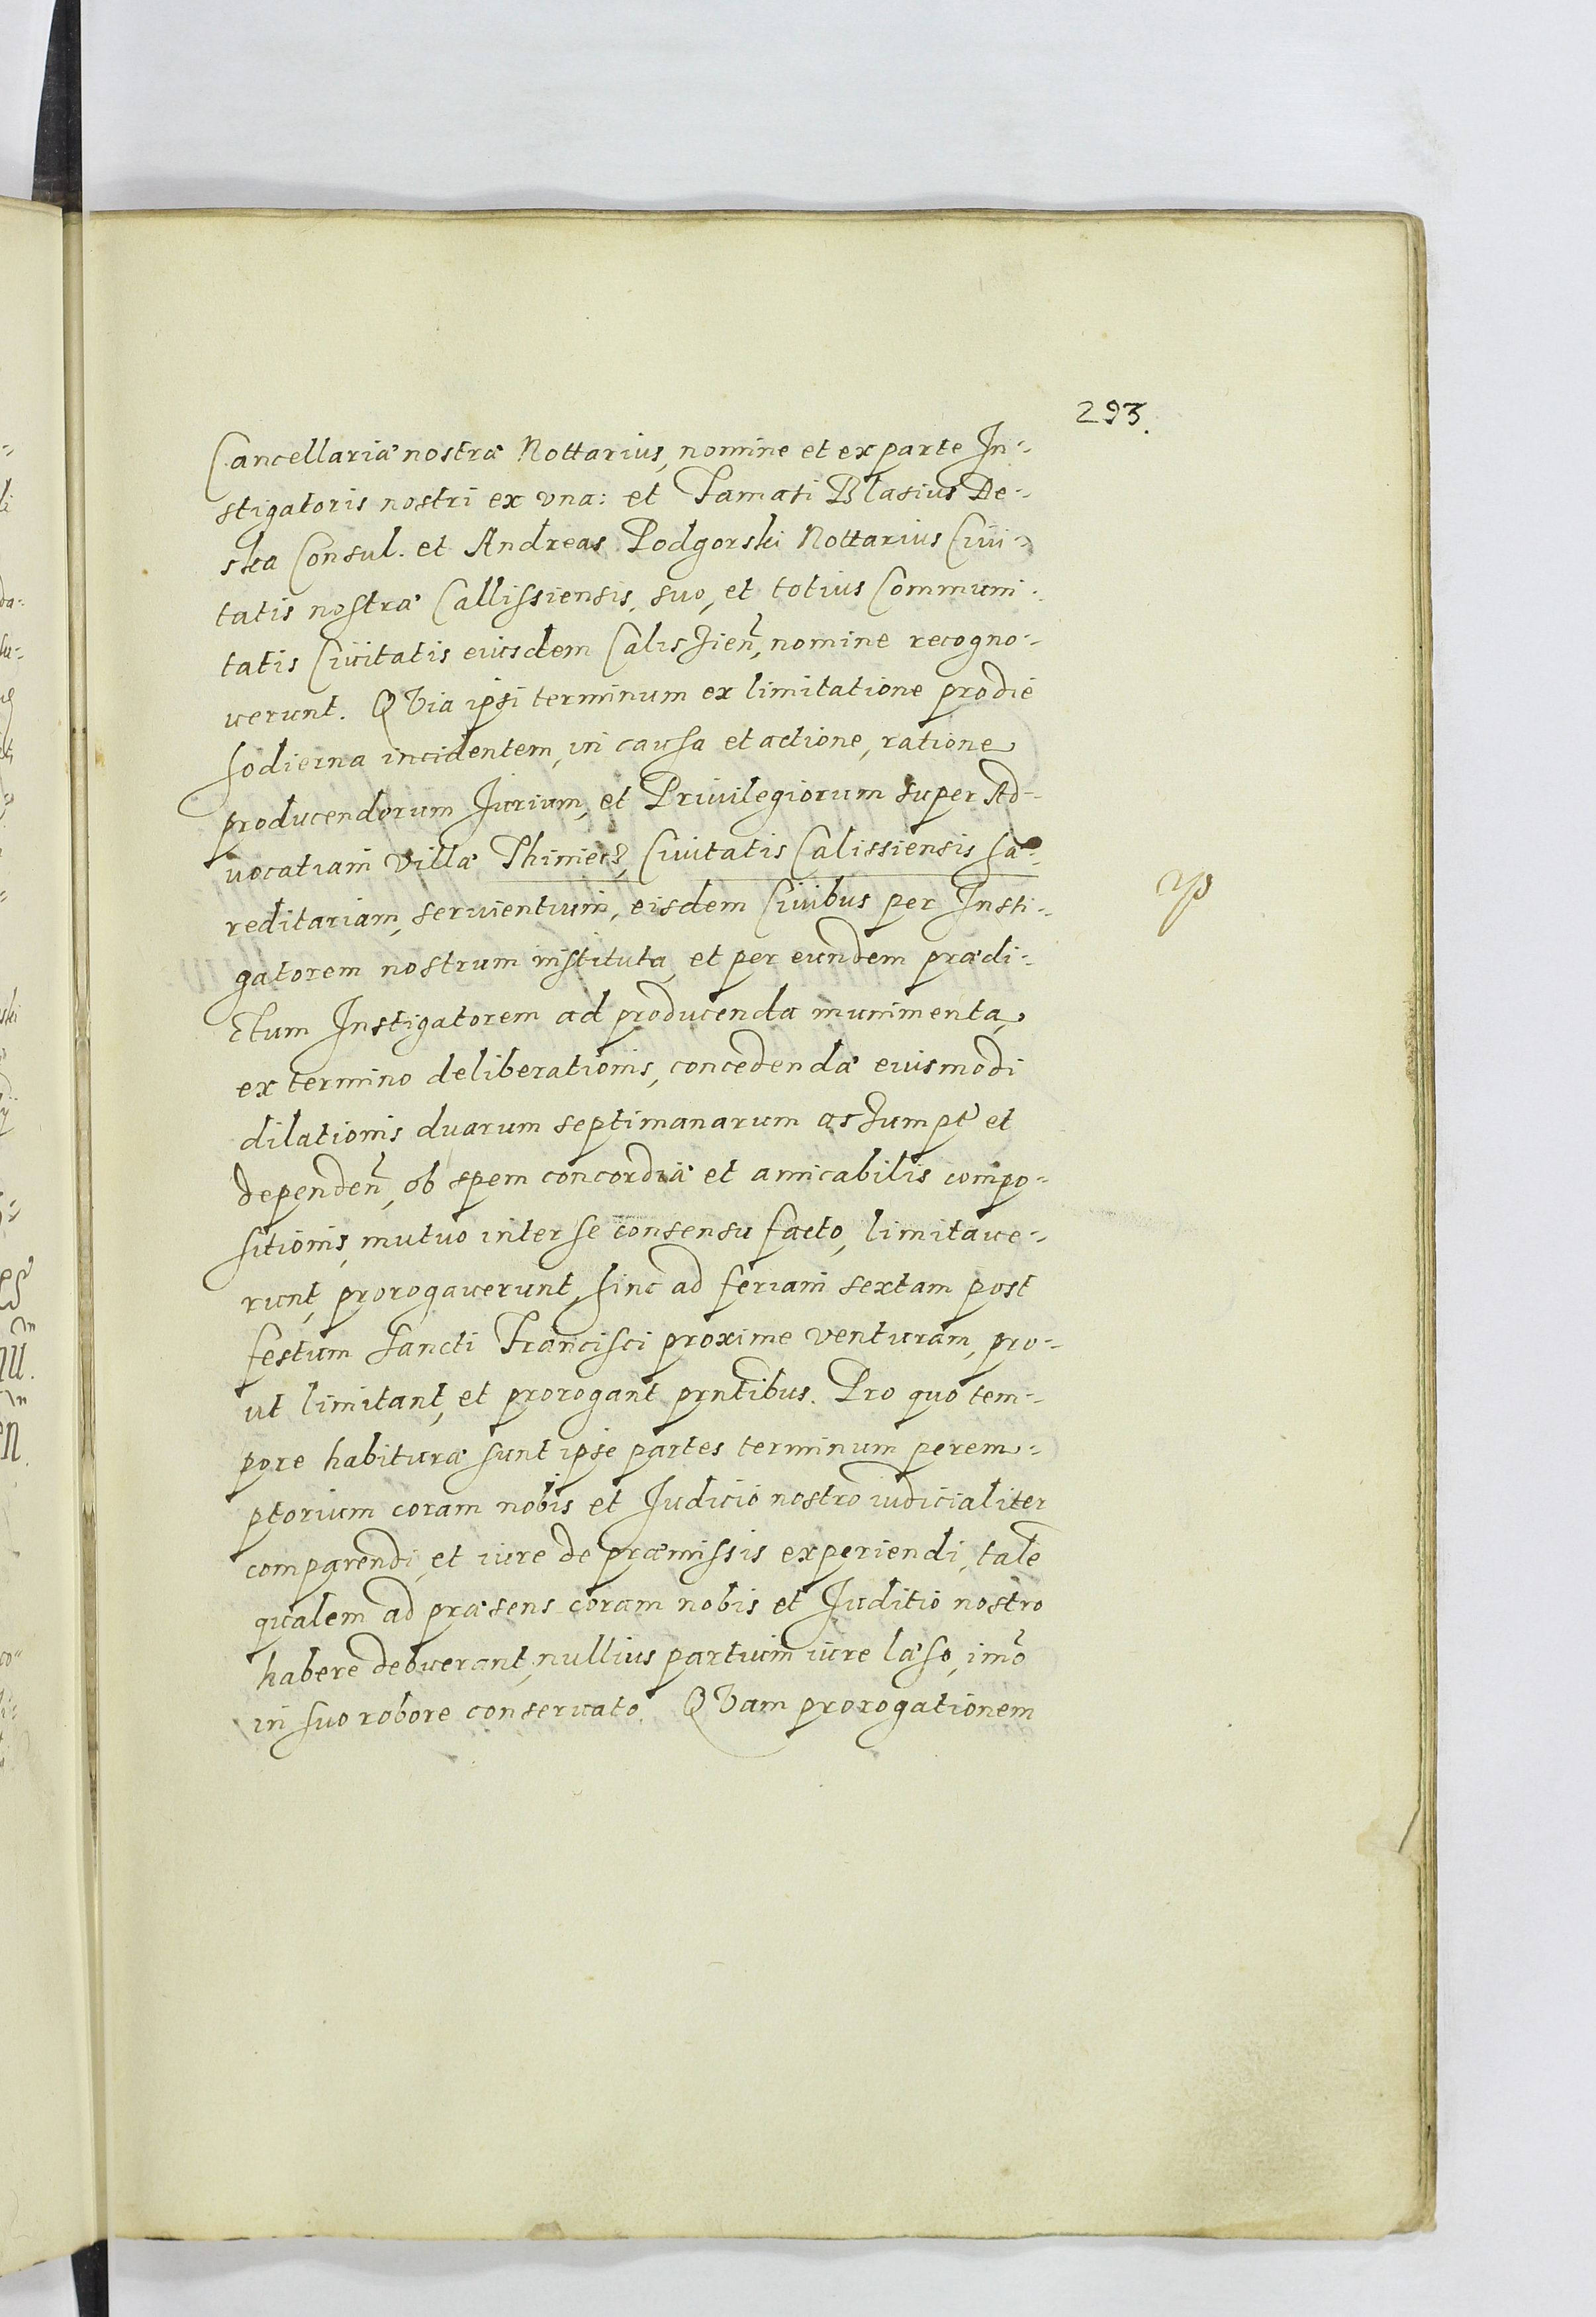 293.
Cancellariæ nostræ Nottarius, nomine et ex parte In-
stigatoris nostri ex vna: et Famati Blasius De-
ska Consul. et Andreas Podgorski Nottarius Ciui-
tatis nostræ Callissiensis, suo, et totius Communi-
tatis Ciuitatis eiusdem Calissień, nomine recogno-
uerunt. QVia ipsi terminum ex limitatione pro die
hodierna incidentem, in causa et actione, ratione
producendorum Jurium, et Priuilegiorum super Ad-
uocatiam Villæ Thiniecz, Ciuitatis Calissiensis hæ-
reditariam, seruientium, eisdem Ciuibus per Insti-
gatorem nostrum instituta, et per eundem prædi-
ctum Instigatorem ad producenda munimenta,
ex termino deliberationis, concedendæ eiusmodi
dilationis duarum septimanarum assumpt et
dependeñ, ob spem concordiæ et amicabilis compo-
sitionis, mutuo inter se consensu facto, limitaue-
runt, prorogauerunt, hinc ad feriam sextam post
festum Sancti Francisci proxime venturam, pro-
ut limitant, et prorogant prntibus. Pro quo tem-
pore habituræ sunt ipse partes terminum perem-
ptorium coram nobis et Judicio nostro iudicialiter
comparendi, et iure de præmissis experiendi, tale
qualem ad præsens coram nobis et Juditio nostro
habere debuerant, nullius partium iure læso, imo
in suo robore conseruato. QVam prorogationem